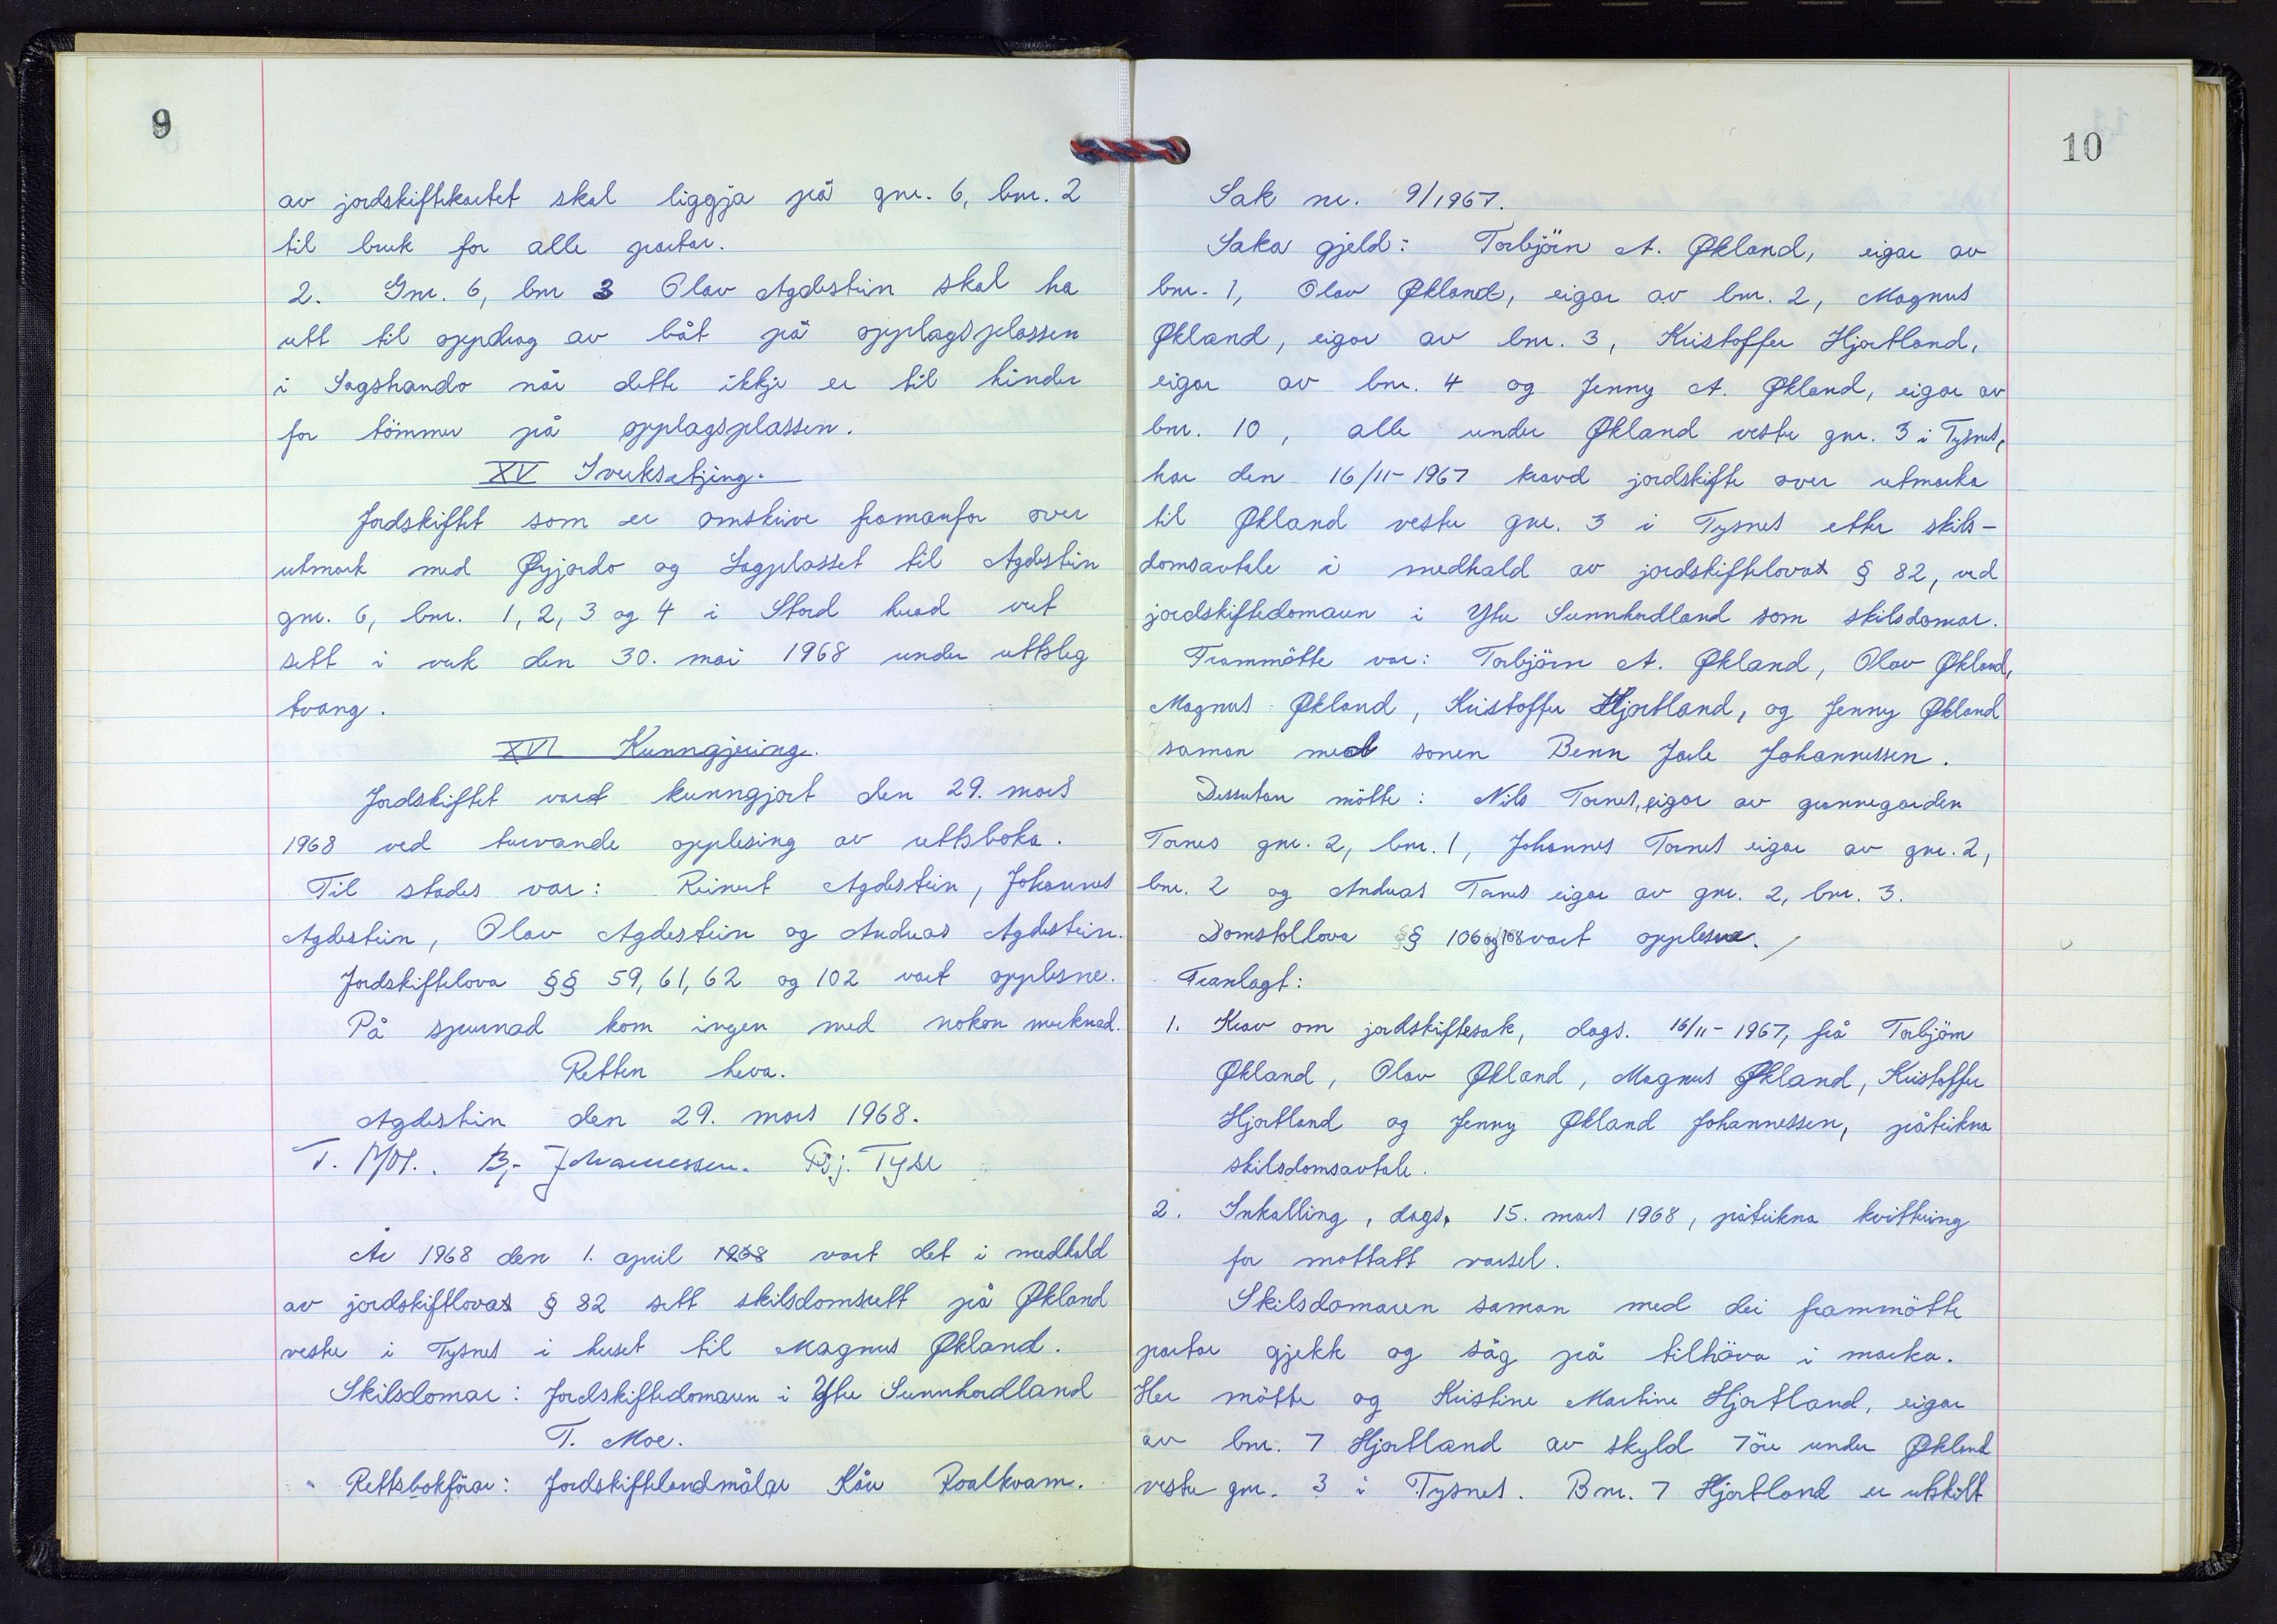 9
av jordskiftekartet skal liggja på gnr. 6, bnr. 2
til bruk for alle partar.
2. Gnr. 6, bnr 3 Olav Agdestein skal ha
rett til oppdrag av båt på opplagsplassen
i Sagshando når dette ikkje er til hinder
for tömmer på opplagsplassen.
XV Iverksetjing.
Jordskiftet som er omskrive framanfor over
utmark med Øyjordo og Sagplasset til Agdestein
gnr. 6, bnr. 1, 2, 3 og 4 i Stord herad vert
sett i verk den 30. mai 1968 under rettsleg
tvang.
XVI Kunngjering.
Jordskiftet vart kunngjort den 29. mars
1968 ved turvande opplesing av rettsboka.
Til stades var: Reinert Agdestein, Johannes
Agdestein, Olav Agdestein og Andreas Agdestein.
Jordskiftelova §§ 59, 61, 62 og 102 vart opplesne.
På spurnad kom ingen med nokon merknad.
Retten heva.
Agdestein den 29. mars 1968.
T. Moe. B. Johannessen. Tyse
År 1968 den 1. april 1968 vart det i medhald
av jordskiftlova § 82 sett skilsdomsrett på Økland
vestre i Tysnes i huset til Magnus Økland.
Skilsdomar: Jordskiftedomaren i Ytre Sunnhordland
T. Moe.
Rettsbokförar: Jordskiftelandmålar Kåre Roalkvam.
10
Sak nr. 9/1967.
Saka gjeld: Torbjörn A. Økland, eigar av
bnr. 1, Olav Økland, eigar av bnr. 2, Magnus
Økland, eigar av bnr. 3, Kristoffer Hjartland,
eigar av bnr. 4 og Jenny A. Økland, eigar av
bnr. 10, alle under Økland vestre gnr. 3 i Tysnes,
har den 16/11-1967 kravd jordskifte over utmarka
til Økland vestre gnr. 3 i Tysnes etter skils-
domsavtale i medhald av jordskiftelova § 82, ved
jordskiftedomaren i Ytre Sunnhordland som skilsdomar.
Frammötte var: Torbjörn A. Økland, Olav Økland,
Magnus Økland, Kristoffer Hjartland, og Jenny Økland
saman med sonen Benn Jarle Johannessen.
Dessutan mötte: Nils Tornes, eigar av grannegarden
Tornes gnr. 2, bnr. 1, Johannes Tornes eigar av gnr. 2,
bnr. 2 og Andreas Tornes eigar av gnr. 2, bnr. 3.
Domstollova §§ 106 og 108 vart opplesne.
Framlagt:
1. Krav om jordskiftesak, dags. 16/11-1967, frå Torbjörn
Økland, Olav Økland, Magnus Økland, Kristoffer
Hjartland og Jenny Økland Johannessen, påteikna
skilsdomsavtale.
2. Innkalling, dags. 15. mars 1968, påteikna kvittering
for mottatt varsel.
Skilsdomaren saman med dei frammötte
partar gjekk og såg på tilhöva i marka.
Her mötte og Kristine Martine Hjartland, eigar
av bnr. 7 Hjartland av skyld 7 öre under Økland
vestre gnr. 3 i Tysnes. Bnr. 7 Hjartland er utskilt